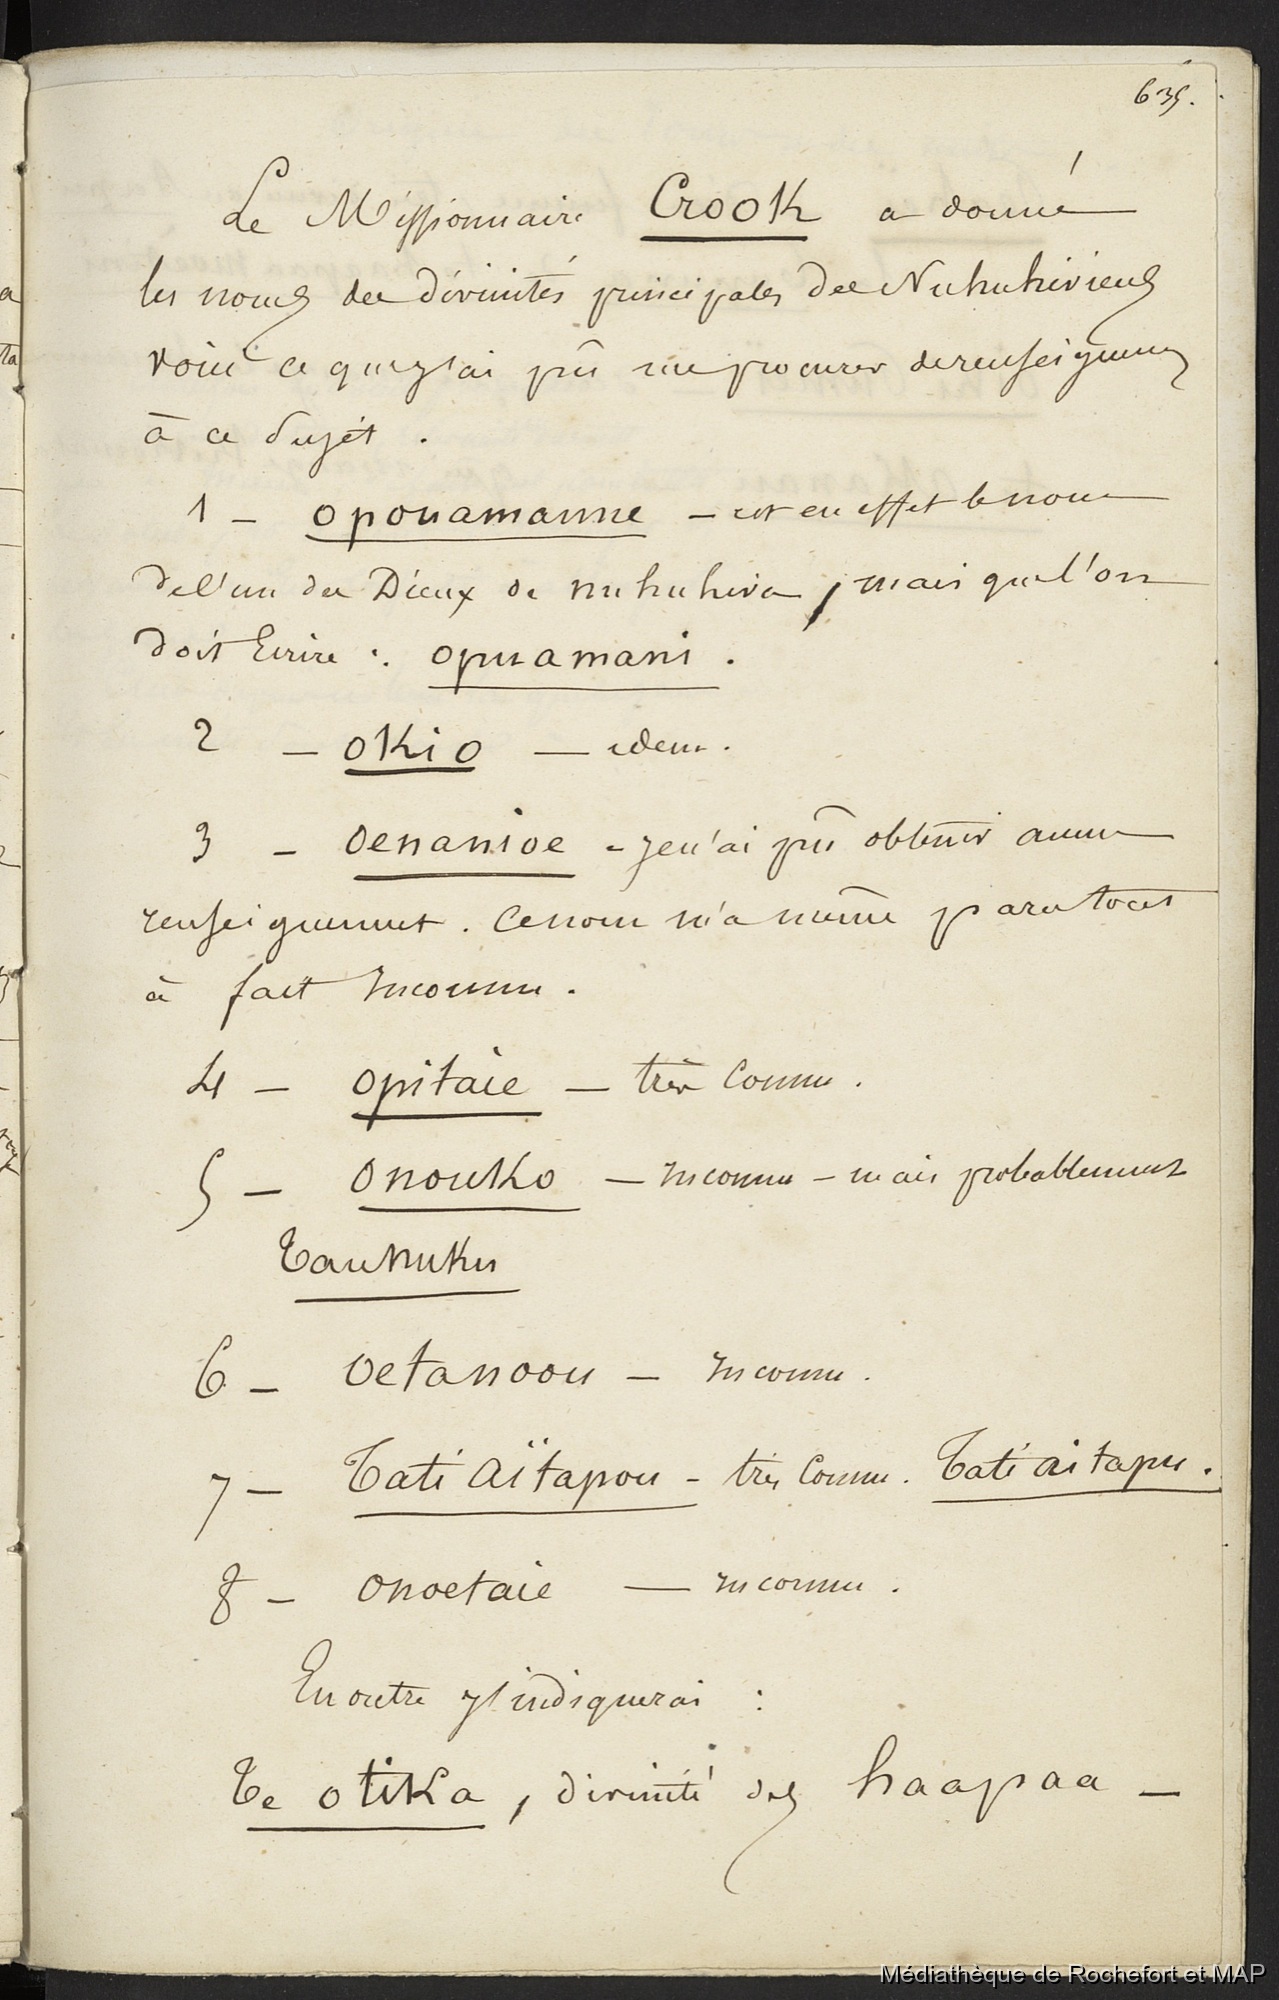 635.
Le Missionnaire Crook a donné
les noms des divinités principales des Nuhuhiviens
voici ce que j'ai pû me procurer de renseignemens
à ce sujet.
1 - opouamanne - est en effet le nom
de l'un des Dieux de nuhuhiva, mais que l'on
doit Ecrire : opuamani.
2 - okio - idem.
3 - oenanioe - je n'ai pû obtenir aucun
renseignement. Ce nom m'a même paru tout
à fait inconnu.
4 - opitaie - très Connu.
5 - onouko - inconnu - mais probablement
Taunuku
6 - oetanoou - inconnu.
7 - Tati aïtapou - très Connu. Tati aitapu.
8 - onoetaie - inconnu.
En outre j'indiquerai :
Te otika, divinité des haapaa -
Médiathèque de Rochefort et MAP